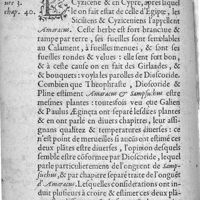 ure 3. Cyzicene & en Cypre, apres lequel
chap. 40. le on fait estat de celle d'Egipte, les
Siciliens & Cyziceniens l'appellent
Amaracum. Ceste herbe est fort brancüe &
rampe par terre, ses fueilles sont semblables
au Calament, à fueilles menues, & sont ses
fueilles rondes & velues: elle sent fort bon,
& à ceste cause on en fait des Girlandes, &
& bouquets: voyla les paroles de Dioscoride.
Combien que Theophraste, Dioscoride &
Pline estiment Amaracum & Sampsuchum estre
mesmes plantes: toutesfois veu que Galien
& Paulus Ægineta ont separé lesdites plantes
& en ont parlé en divers chapitre, leur assi-
gnants qualitez & temperatures diverses: ce
n'est point de merveilles si aucuns ont estimé ces
deux plātes estre diverses, l'opinion desquels
semble estre conforme par Dioscoride, lequel
parle particulierement de l'ongent de Samp-
suchus, & par chapitre separé traite de l'onguēt
d'Amaracum. Lesquelles considerations ont in-
duit plusieurs à croire & estimer ces deux plā-